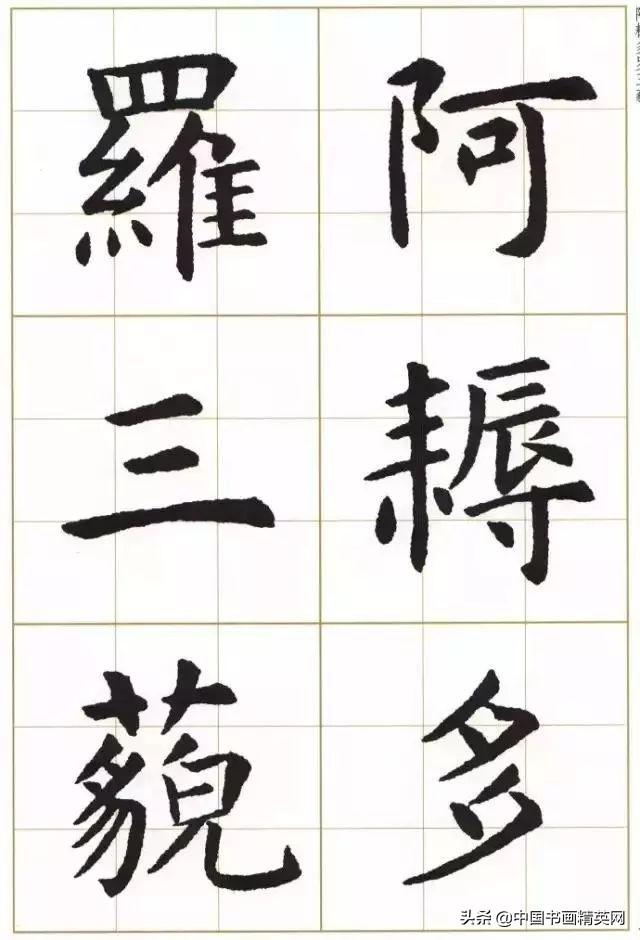 阿耨多
羅三藐
头条 @中国书画精英网